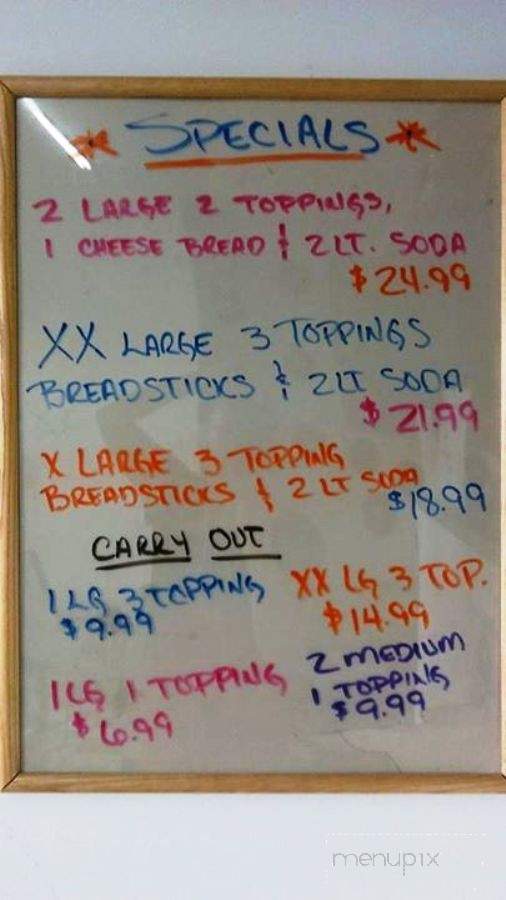 SPECIALS
2 LARGE 2 TOPPINGS,
1 CHEESE BREAD & 2 LT. SODA
$24.99
XX LARGE 3 TOPPINGS
BREADSTICKS & 2 LT SODA
$21.99
X LARGE 3 TOPPING
BREADSTICKS & 2 LT SODA
$18.99
CARRY OUT
1 LG 3 TOPPING
$9.99
XX LG 3 TOP.
$14.99
1 LG 1 TOPPING
$6.99
2 MEDIUM
1 TOPPING
$9.99
menupix